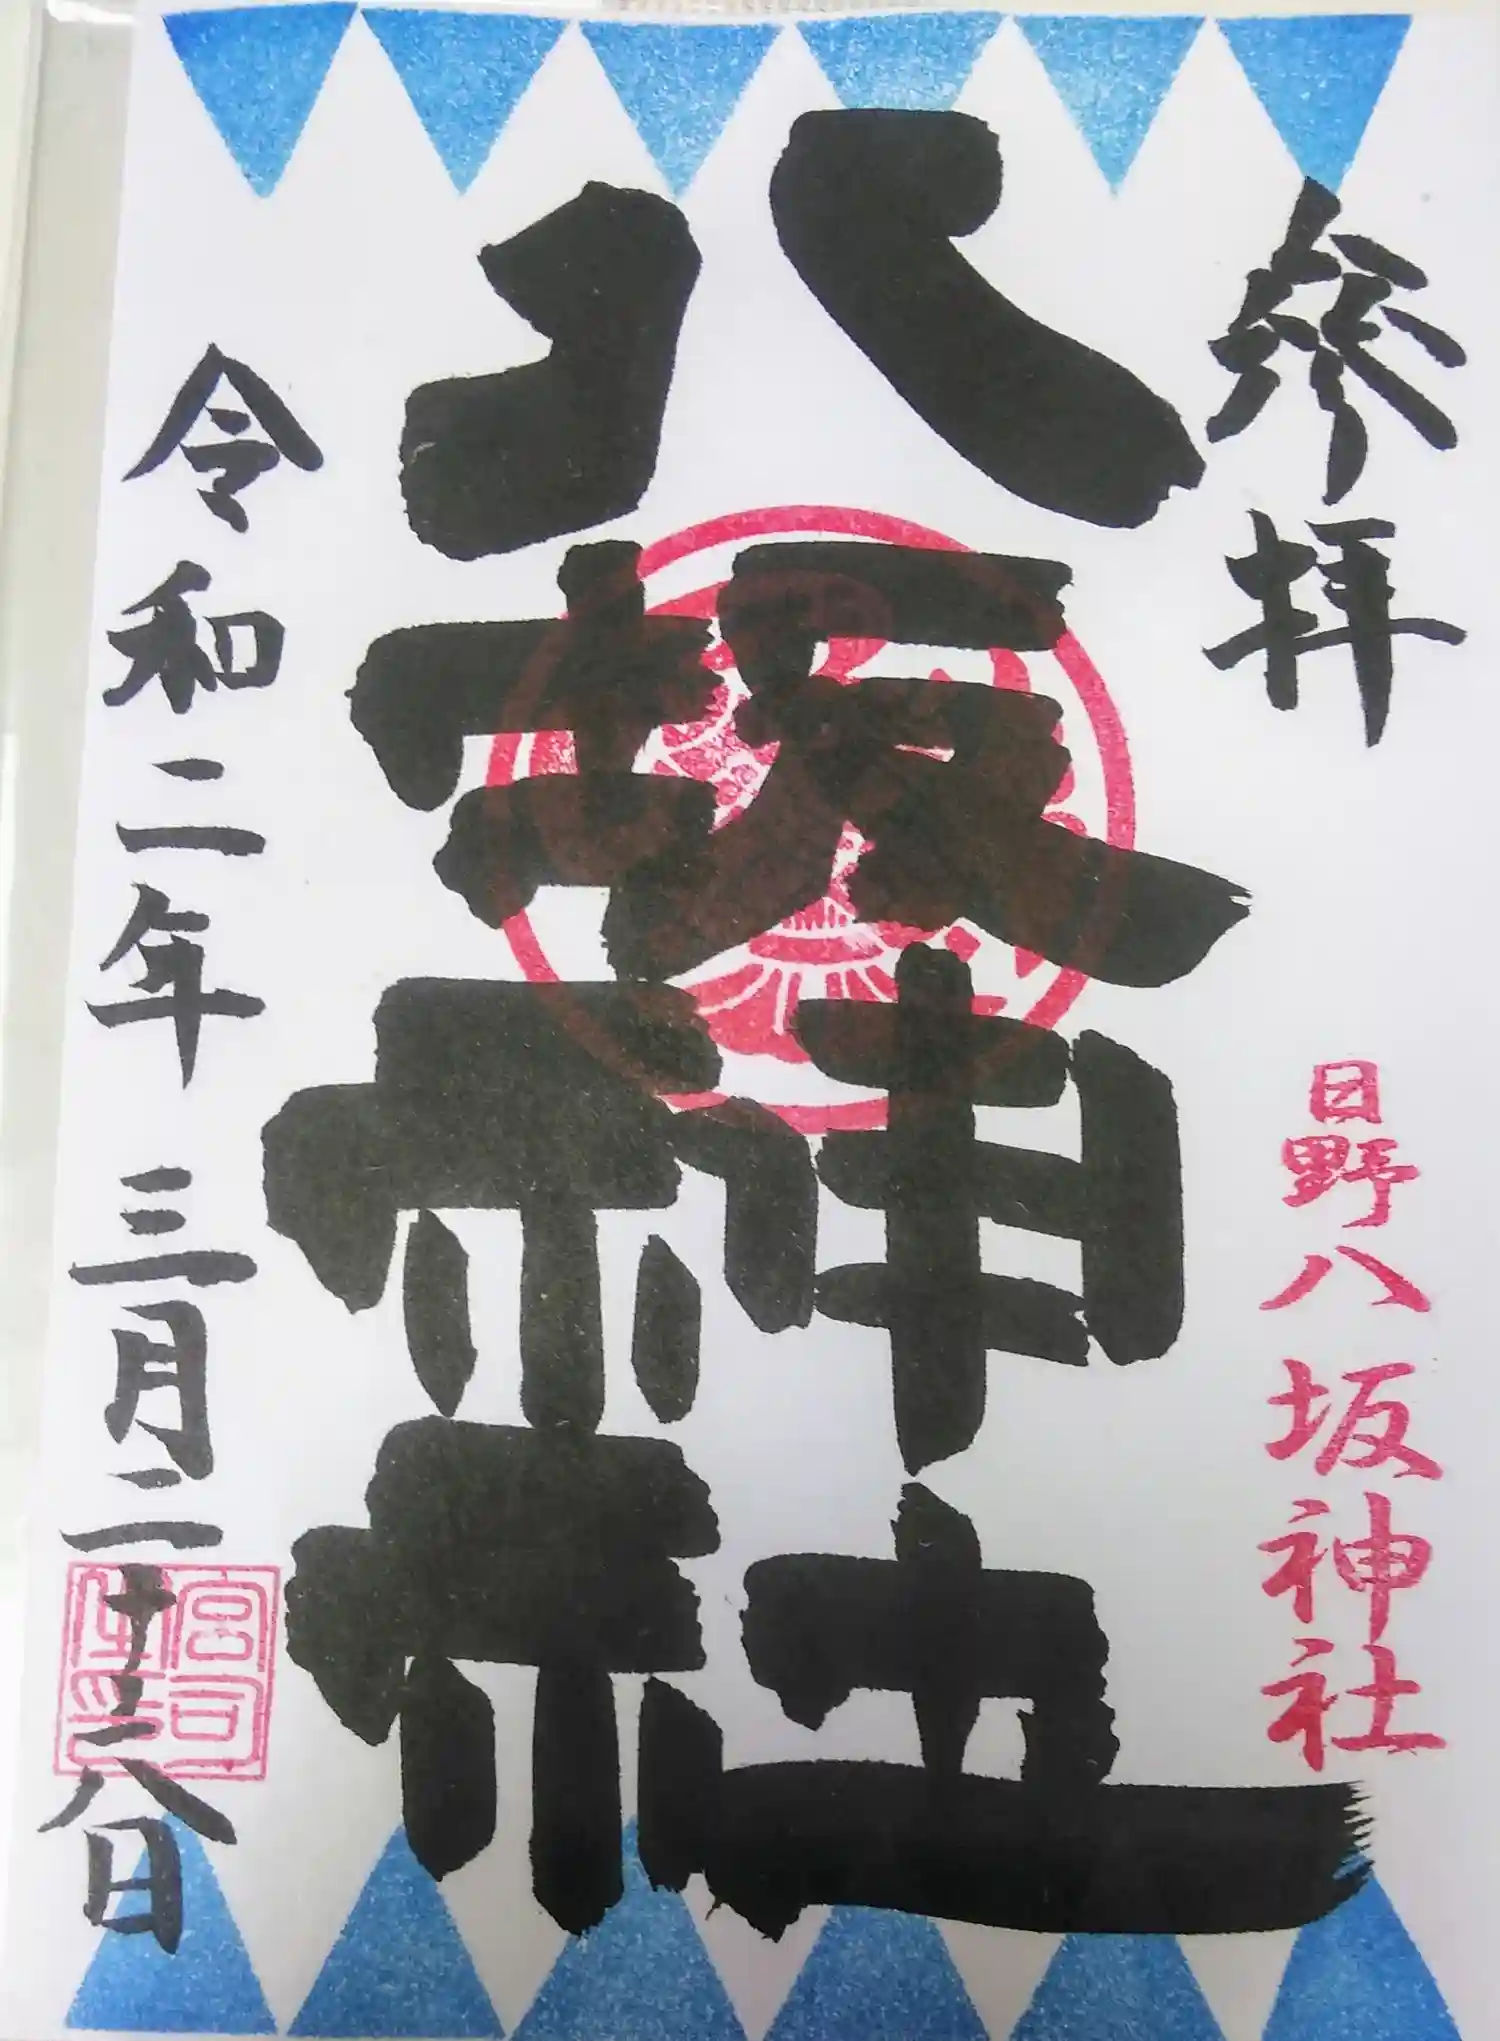 参拝
日野八坂神社
八坂神社
令和二年 三月二十六日
宮司之印